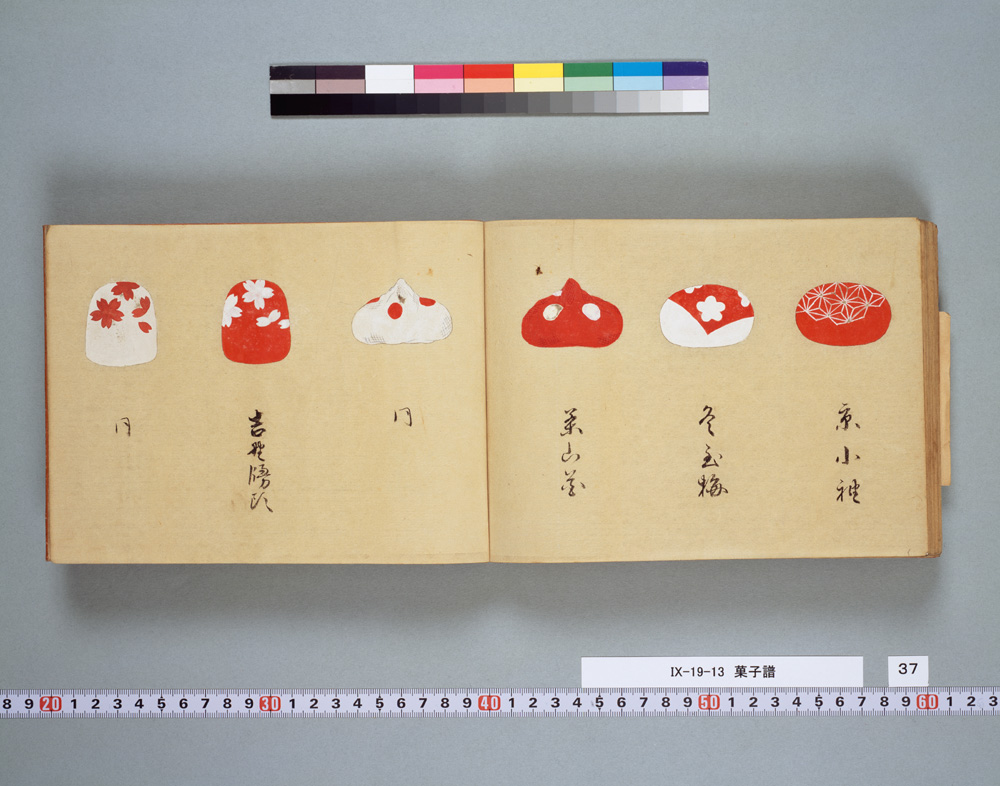 京小袖
冬至梅
茶山花
同
吉野饅頭
同
IX-19-13 菓子譜
37
8 9 20 1 2 3 4 5 6 7 8 9 30 1 2 3 4 5 6 7 8 9 40 1 2 3 4 5 6 7 8 9 50 1 2 3 4 5 6 7 8 9 60 1 2 3